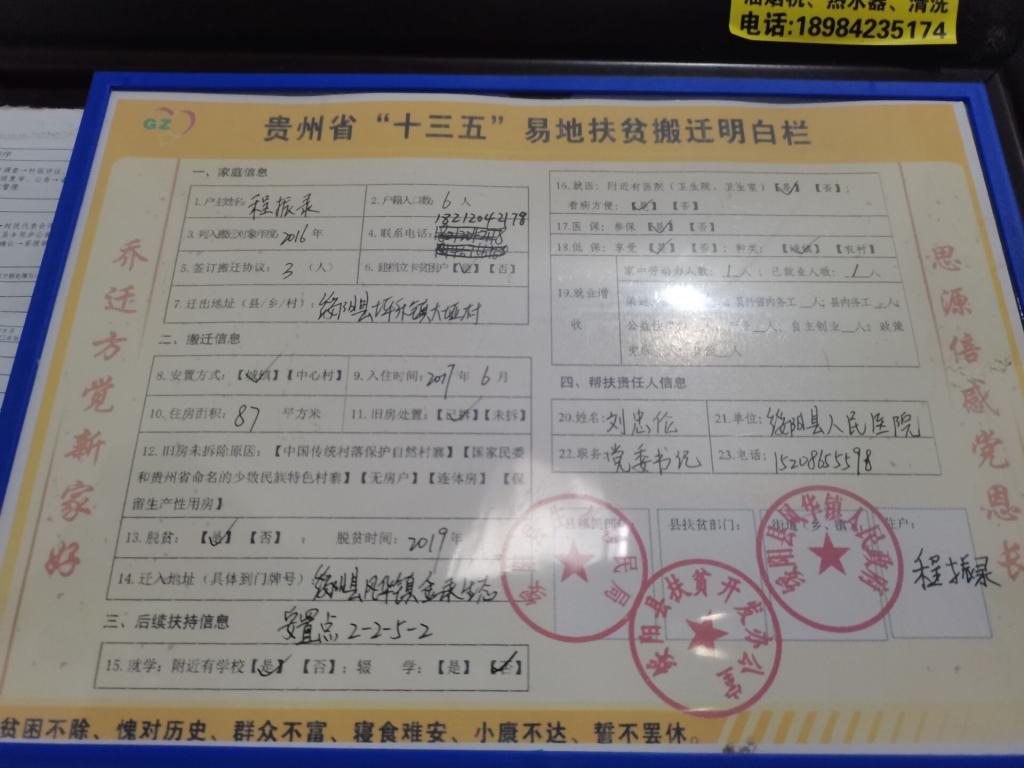 油烟机、热水器、清洗
电话:18984235174
GZ
贵州省“十三五”易地扶贫搬迁明白栏
乔迁方觉新家好
一、家庭信息
1.户主姓名: 程振录
2.户籍人口数: 6 人
3.列入搬迁对象年度: 2016 年
4.联系电话: 18212042178
5.签订搬迁协议: 3 (人)
6.建档立卡贫困户【是】【否】
7.迁出地址(县/乡/村): 绥阳县坪乐镇大垭村
二、搬迁信息
8.安置方式:【城镇】【中心村】
9.入住时间: 2017 年 6 月
10.住房面积: 87 平方米
11.旧房处置:【已拆】【未拆】
12.旧房未拆除原因:【中国传统村落保护自然村寨】【国家民委
和贵州省命名的少数民族特色村寨】【无房户】【连体房】【保
留生产性用房】
13.脱贫:【是】【否】; 脱贫时间: 2019年
14.迁入地址(具体到门牌号) 绥阳县风华镇金承生态
安置点 2-2-5-2
三、后续扶持信息
15.就学:附近有学校【是】【否】;辍 学:【是】【否】
16.就医:附近有医院(卫生院、卫生室)【是】【否】;
看病方便:【是】【否】
17.医 保:参保【是】【否】
18.低 保:享受【是】【否】;种类:【城镇】【农村】
19.就业增
收
家中劳动力人数: 1 人;已就业人数: 1 人
县外省内务工 人;县内务工 人;
人;自主创业 人;政策
人
四、帮扶责任人信息
20.姓名: 刘忠伦
21.单位: 绥阳县人民医院
22.职务: 党委书记
23.电话: 15208655598
县扶贫部门:
程振录
民局
绥阳县扶贫开发办公室
绥阳县风华镇人民政府
思源倍感党恩长
贫困不除、愧对历史、群众不富、寝食难安、小康不达、誓不罢休。